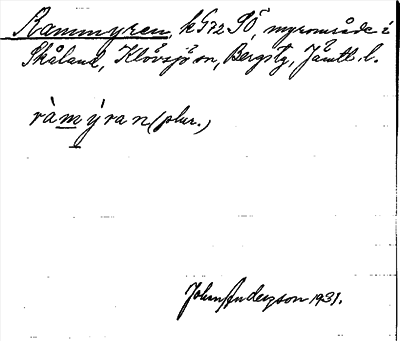 Rammyren, k 572 SÖ, myrområde i
Skåland, Klövsjö sn, Bergs tg, Jämtl. l.
ràmýran (plur.)
John Anderzson 1931.